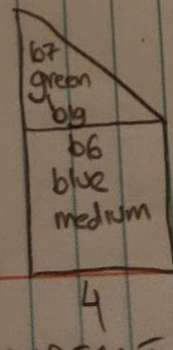 b7
green
big
b6
blue
medium
4